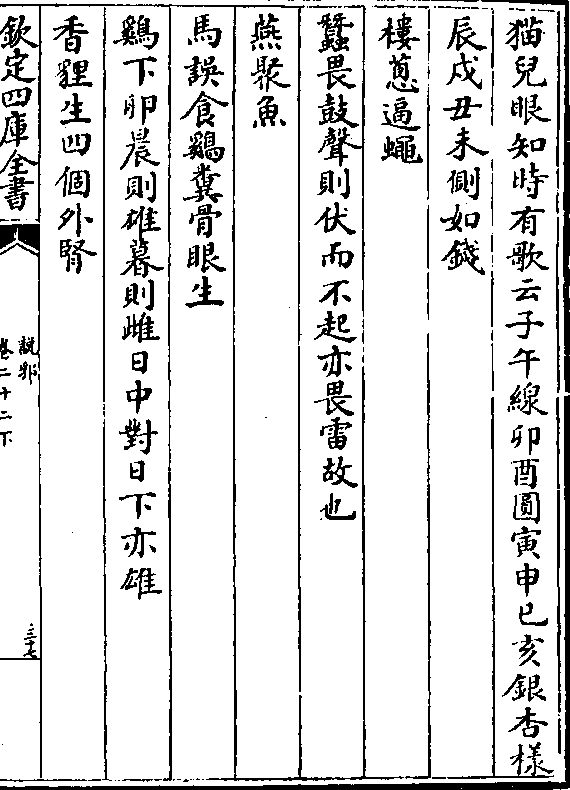 猫兒眼知時有歌云子午線卯酉圓寅申巳亥銀杏樣
辰戍丑未側如錢
樓蔥逼蠅
蠶畏鼓聲則伏而不起亦畏雷故也
燕聚魚
馬誤食鷄糞骨眼生
鷄下卵晨則雄暮則雌日中對日下亦雄
香貍生四個外腎
欽定四庫全書
説郛
卷二十二下
三十七